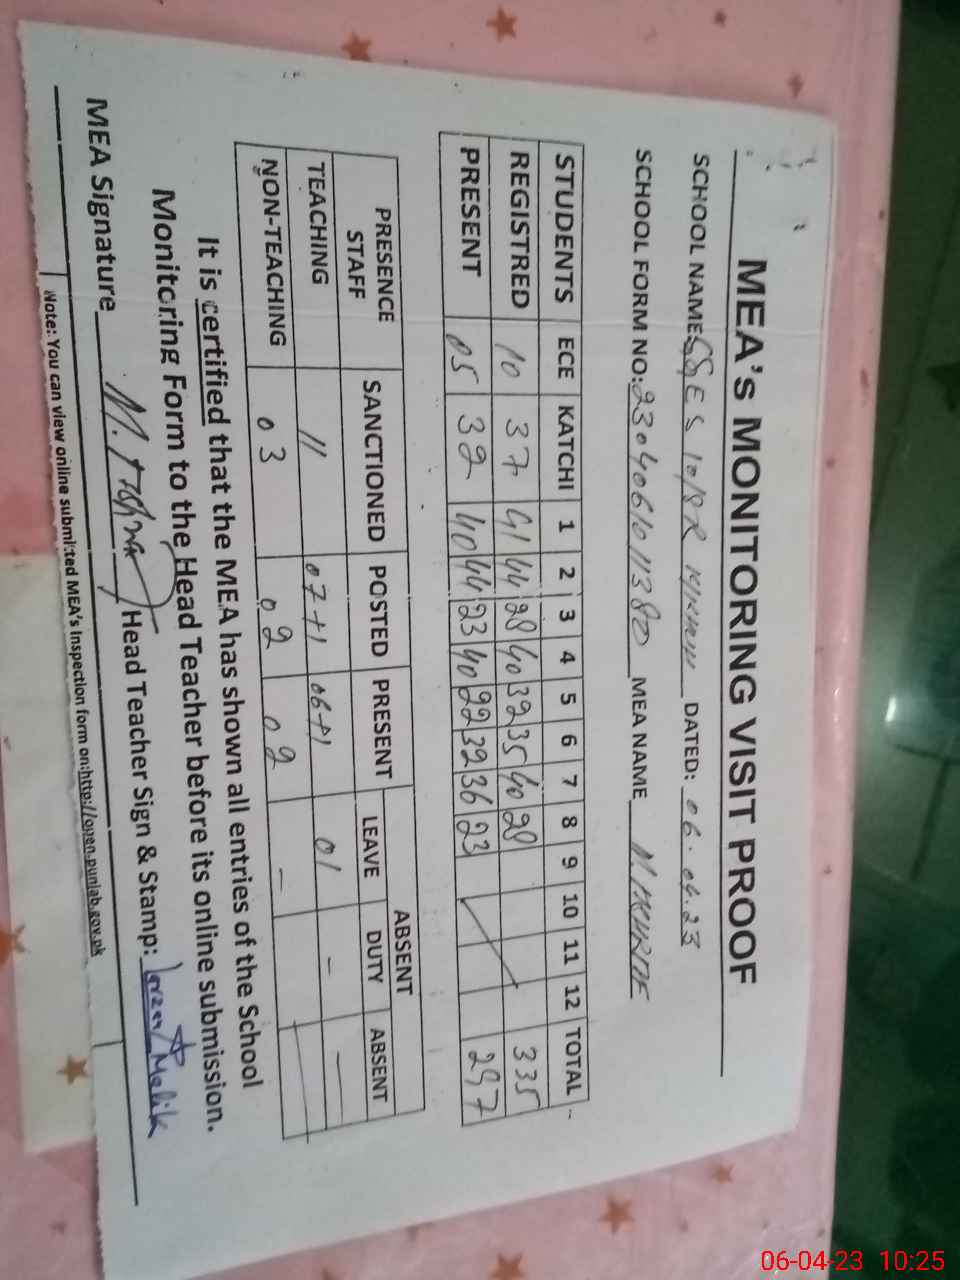 MEA's MONITORING VISIT PROOF
SCHOOL NAME: GGES 10/8R DATED: 06.04.23
SCHOOL FORM NO: 2304061011380 MEA NAME
STUDENTS ECE KATCHI 1 2 3 4 5 6 7 8 9 10 11 12 TOTAL
REGISTRED 10 37 41 44 28 40 32 35 40 28 335
PRESENT 05 32 40 44 23 40 22 32 36 23 297
PRESENCE STAFF SANCTIONED POSTED PRESENT ABSENT
LEAVE DUTY ABSENT
TEACHING 11 07+1 06+1 01 - -
NON-TEACHING 03 02 02 -
It is certified that the MEA has shown all entries of the School
Monitoring Form to the Head Teacher before its online submission.
MEA Signature Head Teacher Sign & Stamp: Malik
Note: You can view online submitted MEA's Inspection form on:http://open.punjab.gov.pk
06-04-23 10:25